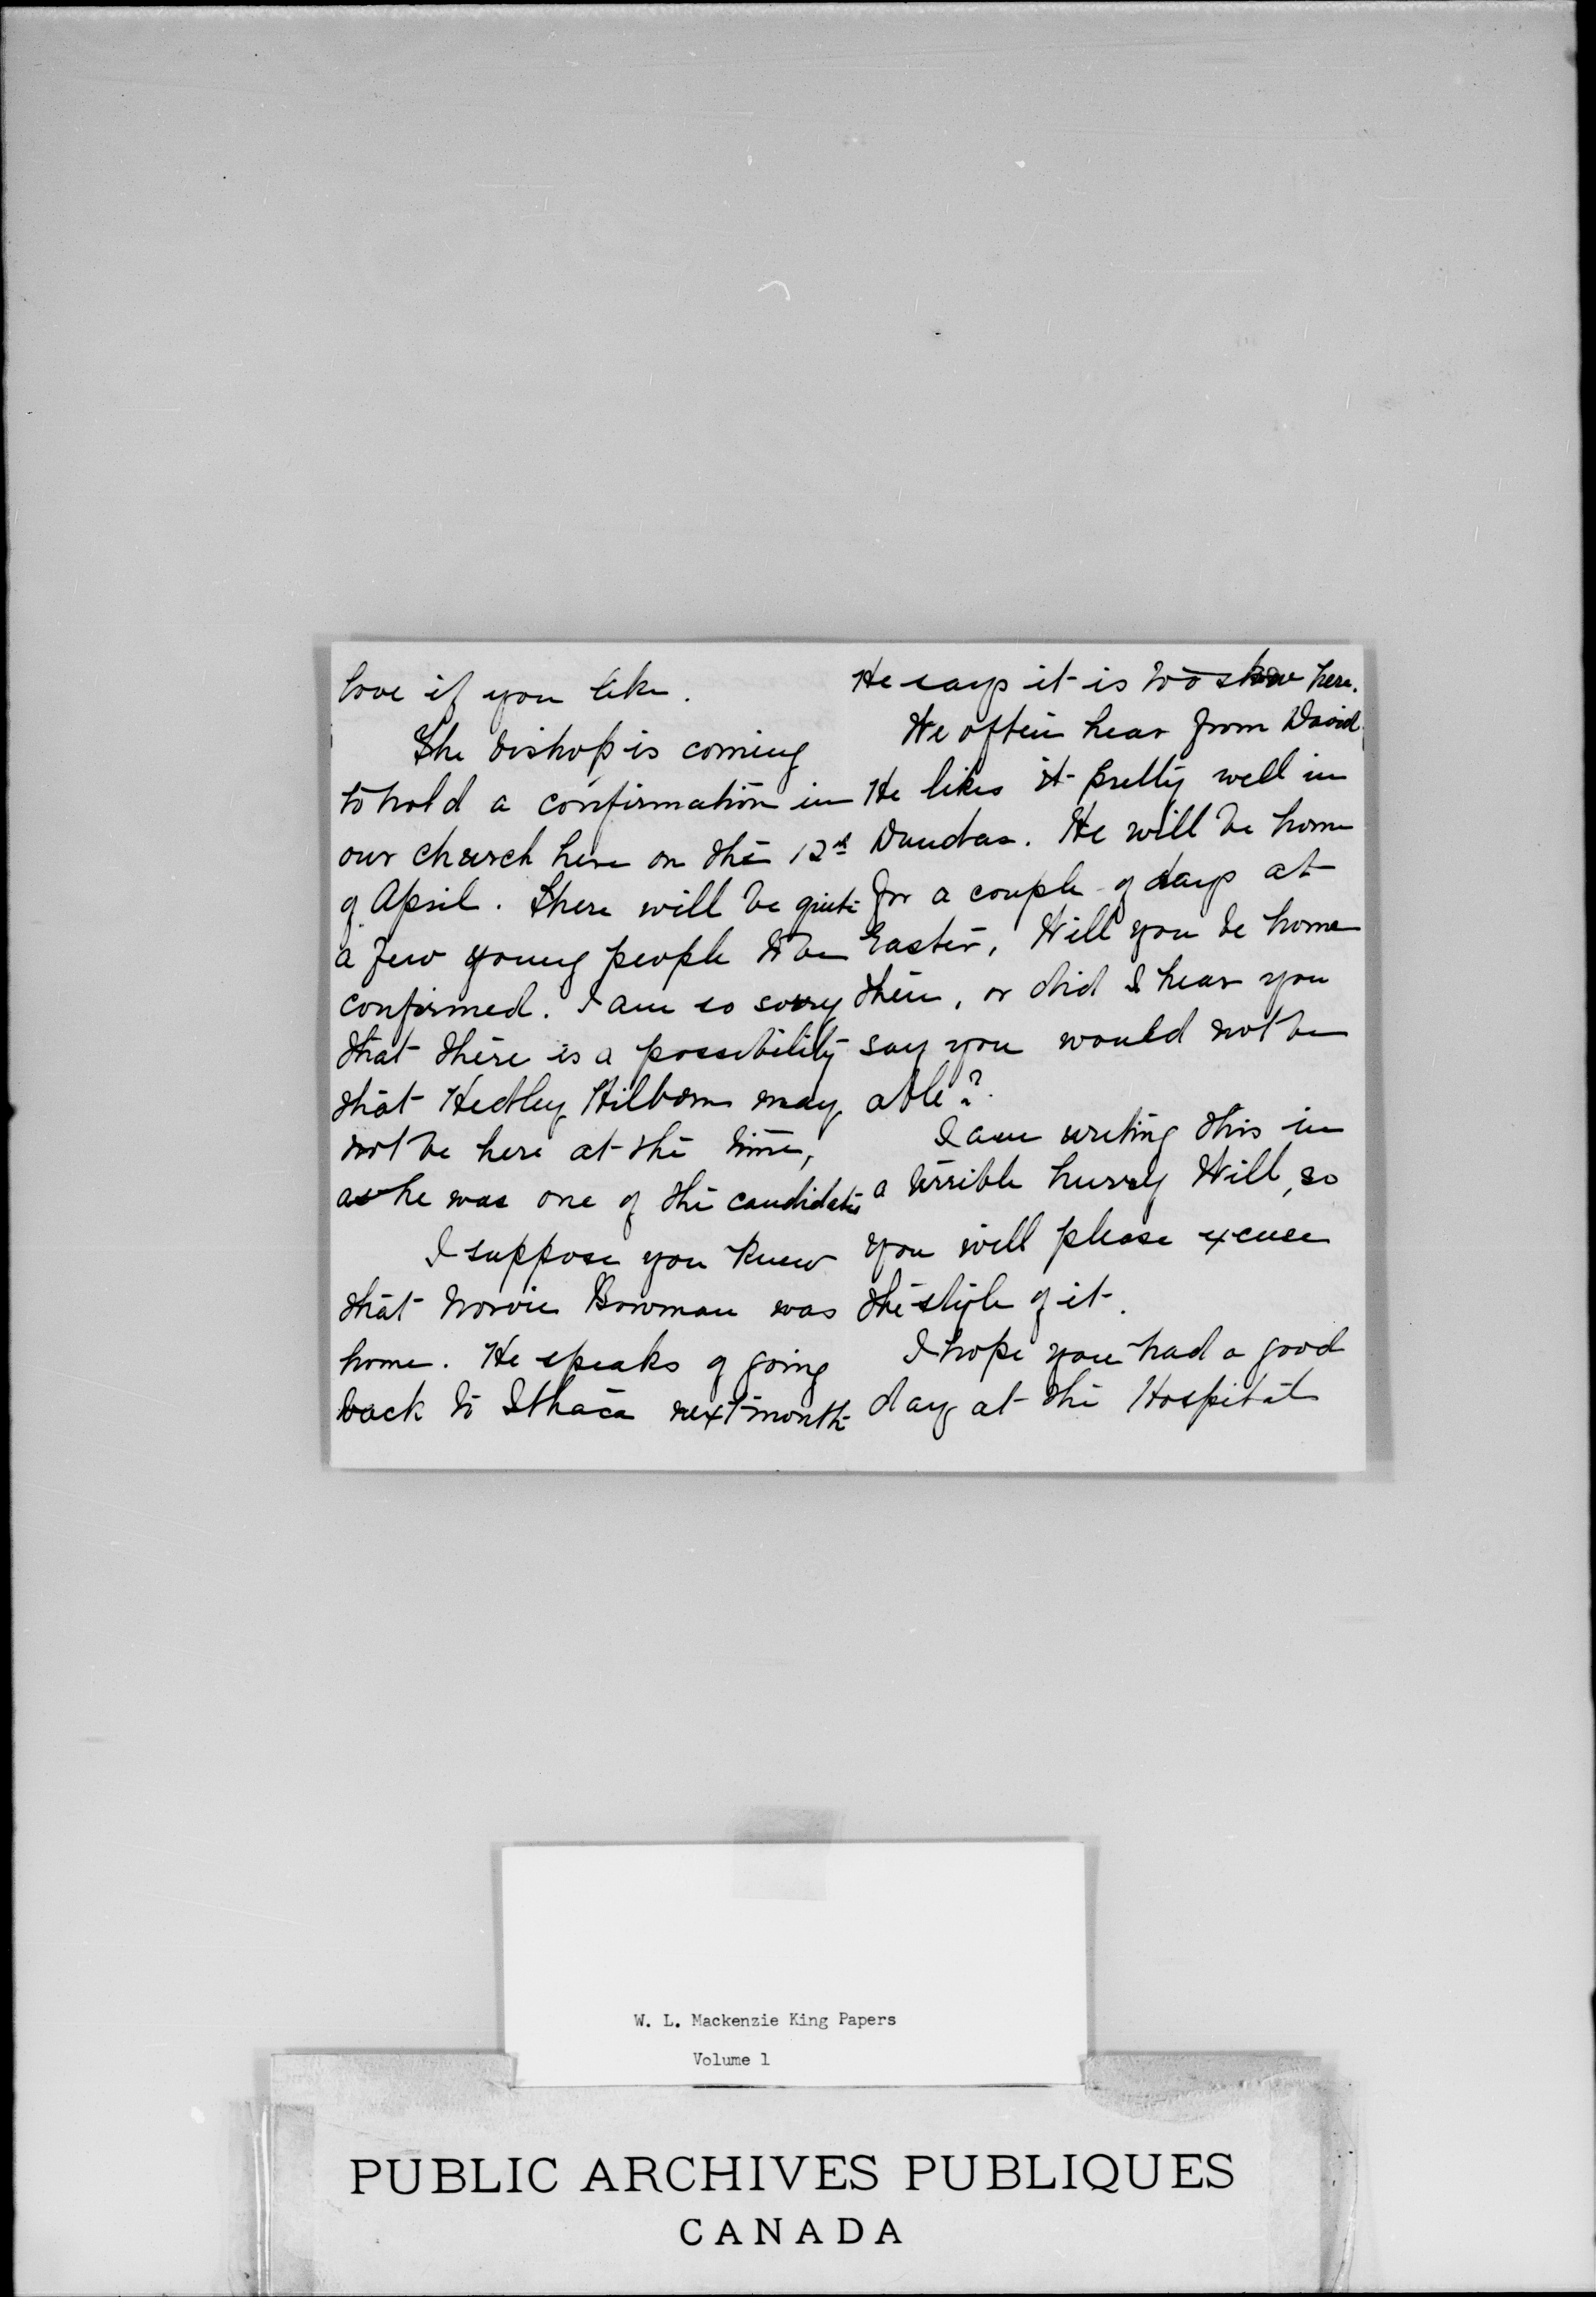 love if you like.
The bishop is coming
to hold a confirmation in
our church here on the 12th
of April. There will be quite
a few young people to be
confirmed. I am so sorry
that there is a possibility
that Hedley Hilborn may
not be here at the time,
as he was one of the candidates
I suppose you knew
that Norvie Bowman was
home. He speaks of going
back to Ithaca next month
He says it is too slow here.
We often hear from David.
He likes it pretty well in
Dundas. He will be home
for a couple of days at
Easter. Will you be home
then, or did I hear you
say you would not be
able?
I am writing this in
a terrible hurry Will, so
you will please excuse
the style of it.
I hope you had a good
day at the Hospital
W. L. Mackenzie King Papers
Volume 1
PUBLIC ARCHIVES PUBLIQUES
CANADA